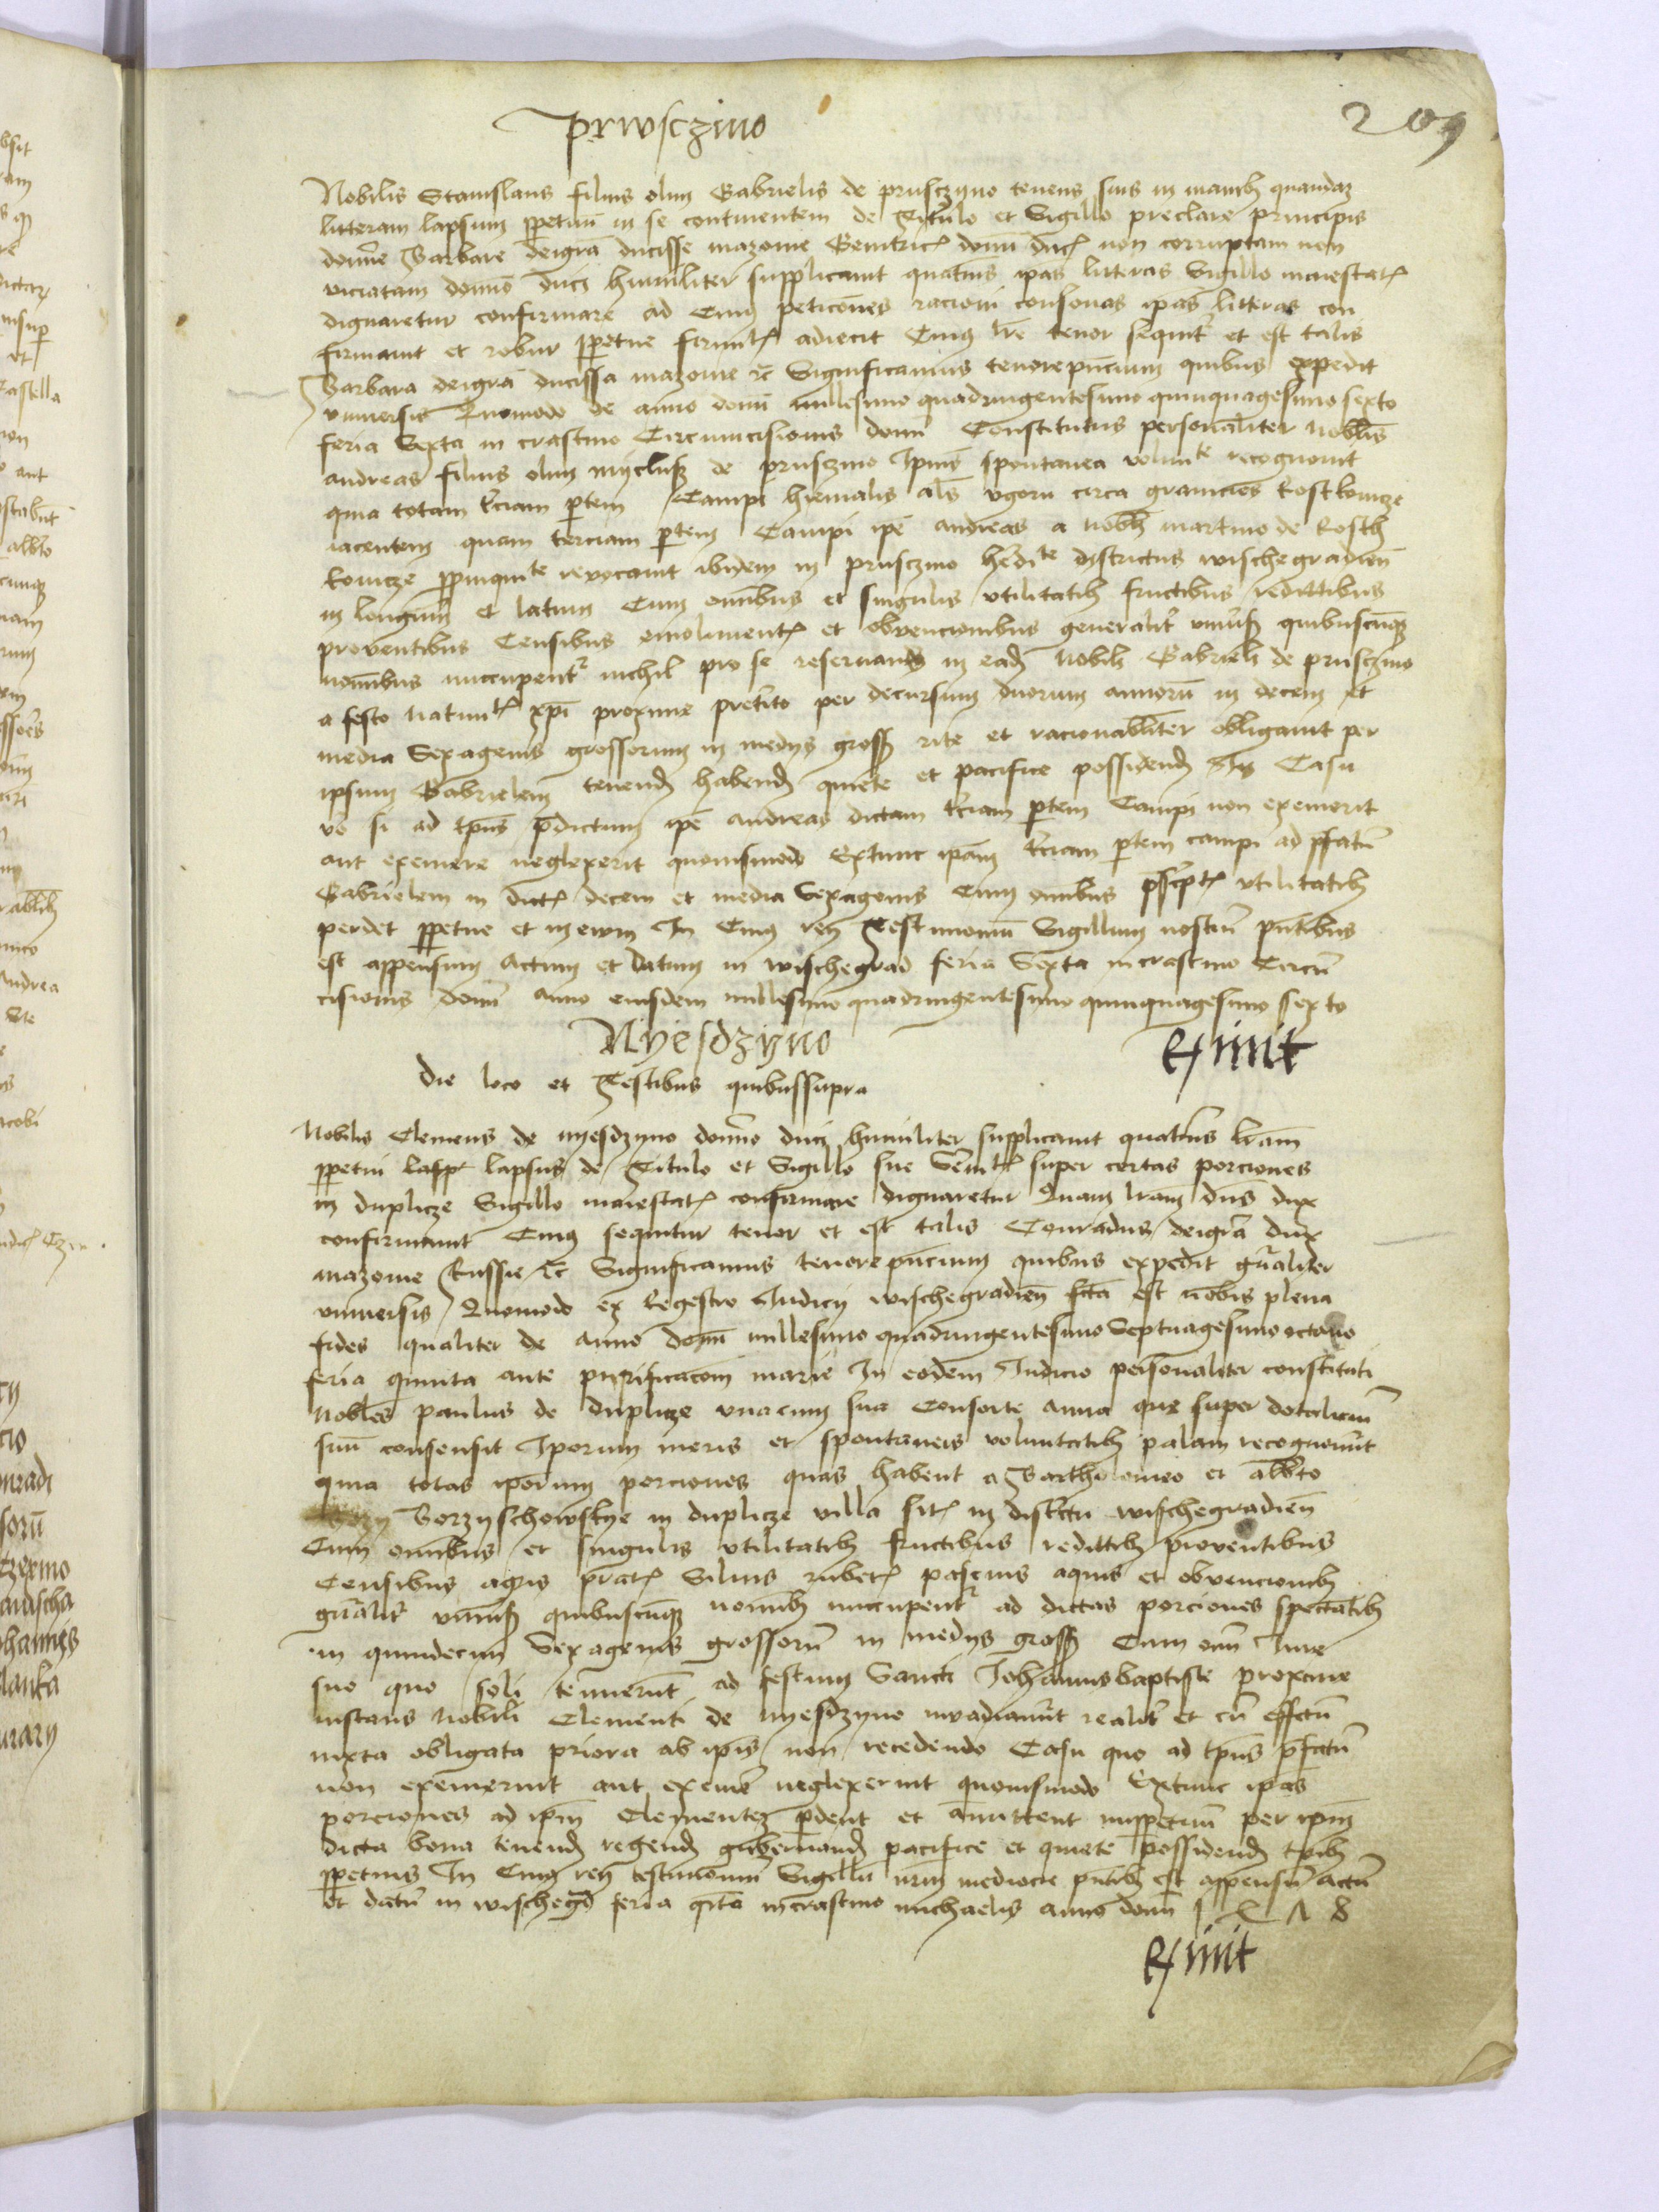 prwsczino
209
Nobilis Stanislaus filius olim Gabrielis de prusczyno tenens suis in manib9 quandaz
litteram lapsum ppetuū in se continentem de Titulo et Sigillo preclare principis
domine Barbare deigrā ducisse mazouie Genitricʒ domī ducʒ non corruptam non
viciatam domino duci humiliter supplicauit quatens ipas litteras Sigillo maiestatʒ
dignaretur confirmare ad Cuius peticōnes racioni consonas ipās litteras con
firmauit et robur ppetue firmitʒ adiecit Cuius lr̄e tenor sequitr et est talis
Barbara deigrā ducissa mazouie rc̄ Significamus tenore pn̄cium quibus expedit
vniuersis Quomodo de anno domī millesimo quadringentesimo quinquagesimo sexto
feria Sexta in crastino Circumcisionis domī Constitutus personaliter nobl̄is
andreas filius olim de prusczino Ipius spontanea volunte recognouit
quia totam tciam ptem Campi hiemalis al̄s vgoru circa granicies Rostkowicze
iacentem quam terciam ptem Campi ipē andreas a nobl̄i martino de Rosth
kowicze ppinquite reuocauit ibidem in prusczino hedite districtus wischegradien̄
in longum et latum Cum omībus et singulis vtilitatib9 fructibus redittibus
prouentibus Censibus emolimentʒ et obuencionibus generalitr quibuscūqʒ
nomībus nuccupentr nichil pro se reseruans in eadʒ Nobili Gabrieli de prusczino
a festo natiuitʒ xpī proxime preterito per decursum duorum annorū in decem et
media Sexagenis grossorum in medys gross rite et racionabl̄iter obligauit per
ipsum Gabrielem tenend habend quiete et pacifice possidend In Casu
vo si ad tp̄us p̄dictum ipē andreas dictam tciam ptem Campi non exemerit
aut exemere neglexerit quouismodo Extunc ipām tciam ptem campi ad pfatū
Gabrielem in dictʒ decem et media Sexagenis Cum omībus vtilitatib9
perdet ppetue et in ewm In Cuius rei Testimoniū Sigillum nostrū pn̄tibus
est appensum Actum et Datum in wischegrad feria Sexta in crastino Circū
cisionis domī anno eiusdem millesimo quadringentesimo quinquagesimo sexto
Nyesdzyno
Die loco et Testibus quibussupra
Nobilis Clemens de nyesdzyno domino duci humiliter supplicauit quatens lr̄am
ppetui lapsus de Titulo et Sigillo sue super certas porciones
in duplicze Sigillo maiestatʒ confirmare dignaretur Quam lr̄am dn̄s dux
confirmauit Cuius sequitur tenor et est talis Conradus deigrā dux
mazouie Russie rc̄ Significamus tenore pn̄cium quibus expedit gn̄aliter
vniuersis Quomodo ex Regestro Iudicij wischegradien̄ fcā est nobis plena
fides qualiter de anno domī millesimo quadringentesimo Septuagesimo octauo
feria quinta ante purificacōm marie In eodem Iudicio personaliter constituti
Nobl̄es paulus de duplicze vnacum sua Consorte anna que super dotaliciū
suū consensit Iporum meris et spontaneis voluntatib9 palam recognouert
quia totas iporum porciones quas habent a Bartholomeo et albto
Borzyschowskye in duplicze villa sitʒ in districtu wischegradien̄
Cum omībus et singulis vtilitatib9 fructibus redittib9 prouentibus
Censibus agris pratʒ Siluis rubetʒ pascuis aquis et obuencionib9
gn̄alitr quibuscūqʒ nomīb9 nuccupentr ad dictas porciones spectātib9
in quindecim Sexagenis grossorū in medys gross Cum omī Iure
suo quo soli tenuerūt ad festum Sancti Iohannisbaptiste proxime
instans Nobili Clementi de nyesdzyno inuadiauert realitr et cū effectu
iuxta obligata priora ab ipis non recedendo Casu quo ad tp̄us p̄fatū
non exemerint aut exemer neglexerint quouismodo Extunc ipas
porciones ad ipm̄ Clementez pdent et amittent inppetuū per ipm̄
dicta bona tenend regend gubernand pacifice et quiete possidend tpib9
ppetuis In Cuius rei testimoniū Sigillū nr̄m mediocre pn̄tib9 est appensū Actū
et datū in wischegd̄ feria in crastino michaelis anno domī